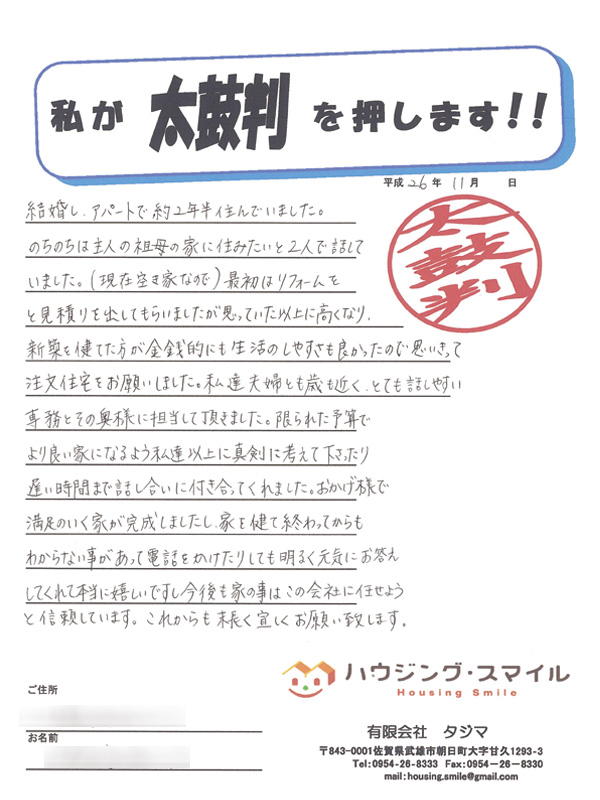 私が 太鼓判 を押します!!
平成 26 年 11 月 日
太鼓判
結婚し、アパートで約2年半住んでいました。
のちのちは主人の祖母の家に住みたいと2人で話して
いました。(現在空き家なので)最初はリフォームを
と見積りを出してもらいましたが思っていた以上に高くなり、
新築を健てた方が金銭的にも生活のしやすさも良かったので思いきって
注文住宅をお願いしました。私達夫婦とも歳も近く、とても話しやすい
専務とその奥様に担当して頂きました。限られた予算で
より良い家になるよう私達以上に真剣に考えて下さったり
遅い時間まで話し合いに付き合ってくれました。おかげ様で
満足のいく家が完成しましたし、家を健て終わってからも
わからない事があって電話をかけたりしても明るく元気にお答え
してくれて本当に嬉しいですし今後も家の事はこの会社に任せよう
と信頼しています。これからも末長く宜しくお願い致します。
ハウジング・スマイル
Housing Smile
ご住所
お名前
有限会社 タジマ
〒843-0001佐賀県武雄市朝日町大字甘久1293-3
Tel:0954-26-8333 Fax:0954-26-8330
mail:housing.smile@gmail.com